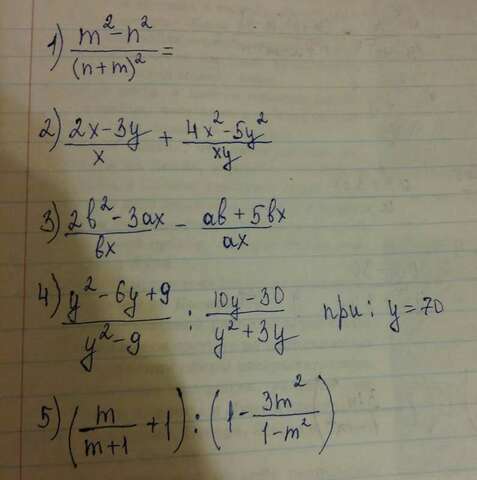 1) (m² - n²)/(n+m)² =
2) (2x - 3y)/x + (4x² - 5y²)/xy
3) (2в² - 3ax)/вx - (aв + 5вx)/ax
4) (y² - 6y + 9)/(y² - 9) : (10y - 30)/(y² + 3y) при: y = 70
5) (m/(m+1) + 1) : (1 - 3m²/(1 - m²))